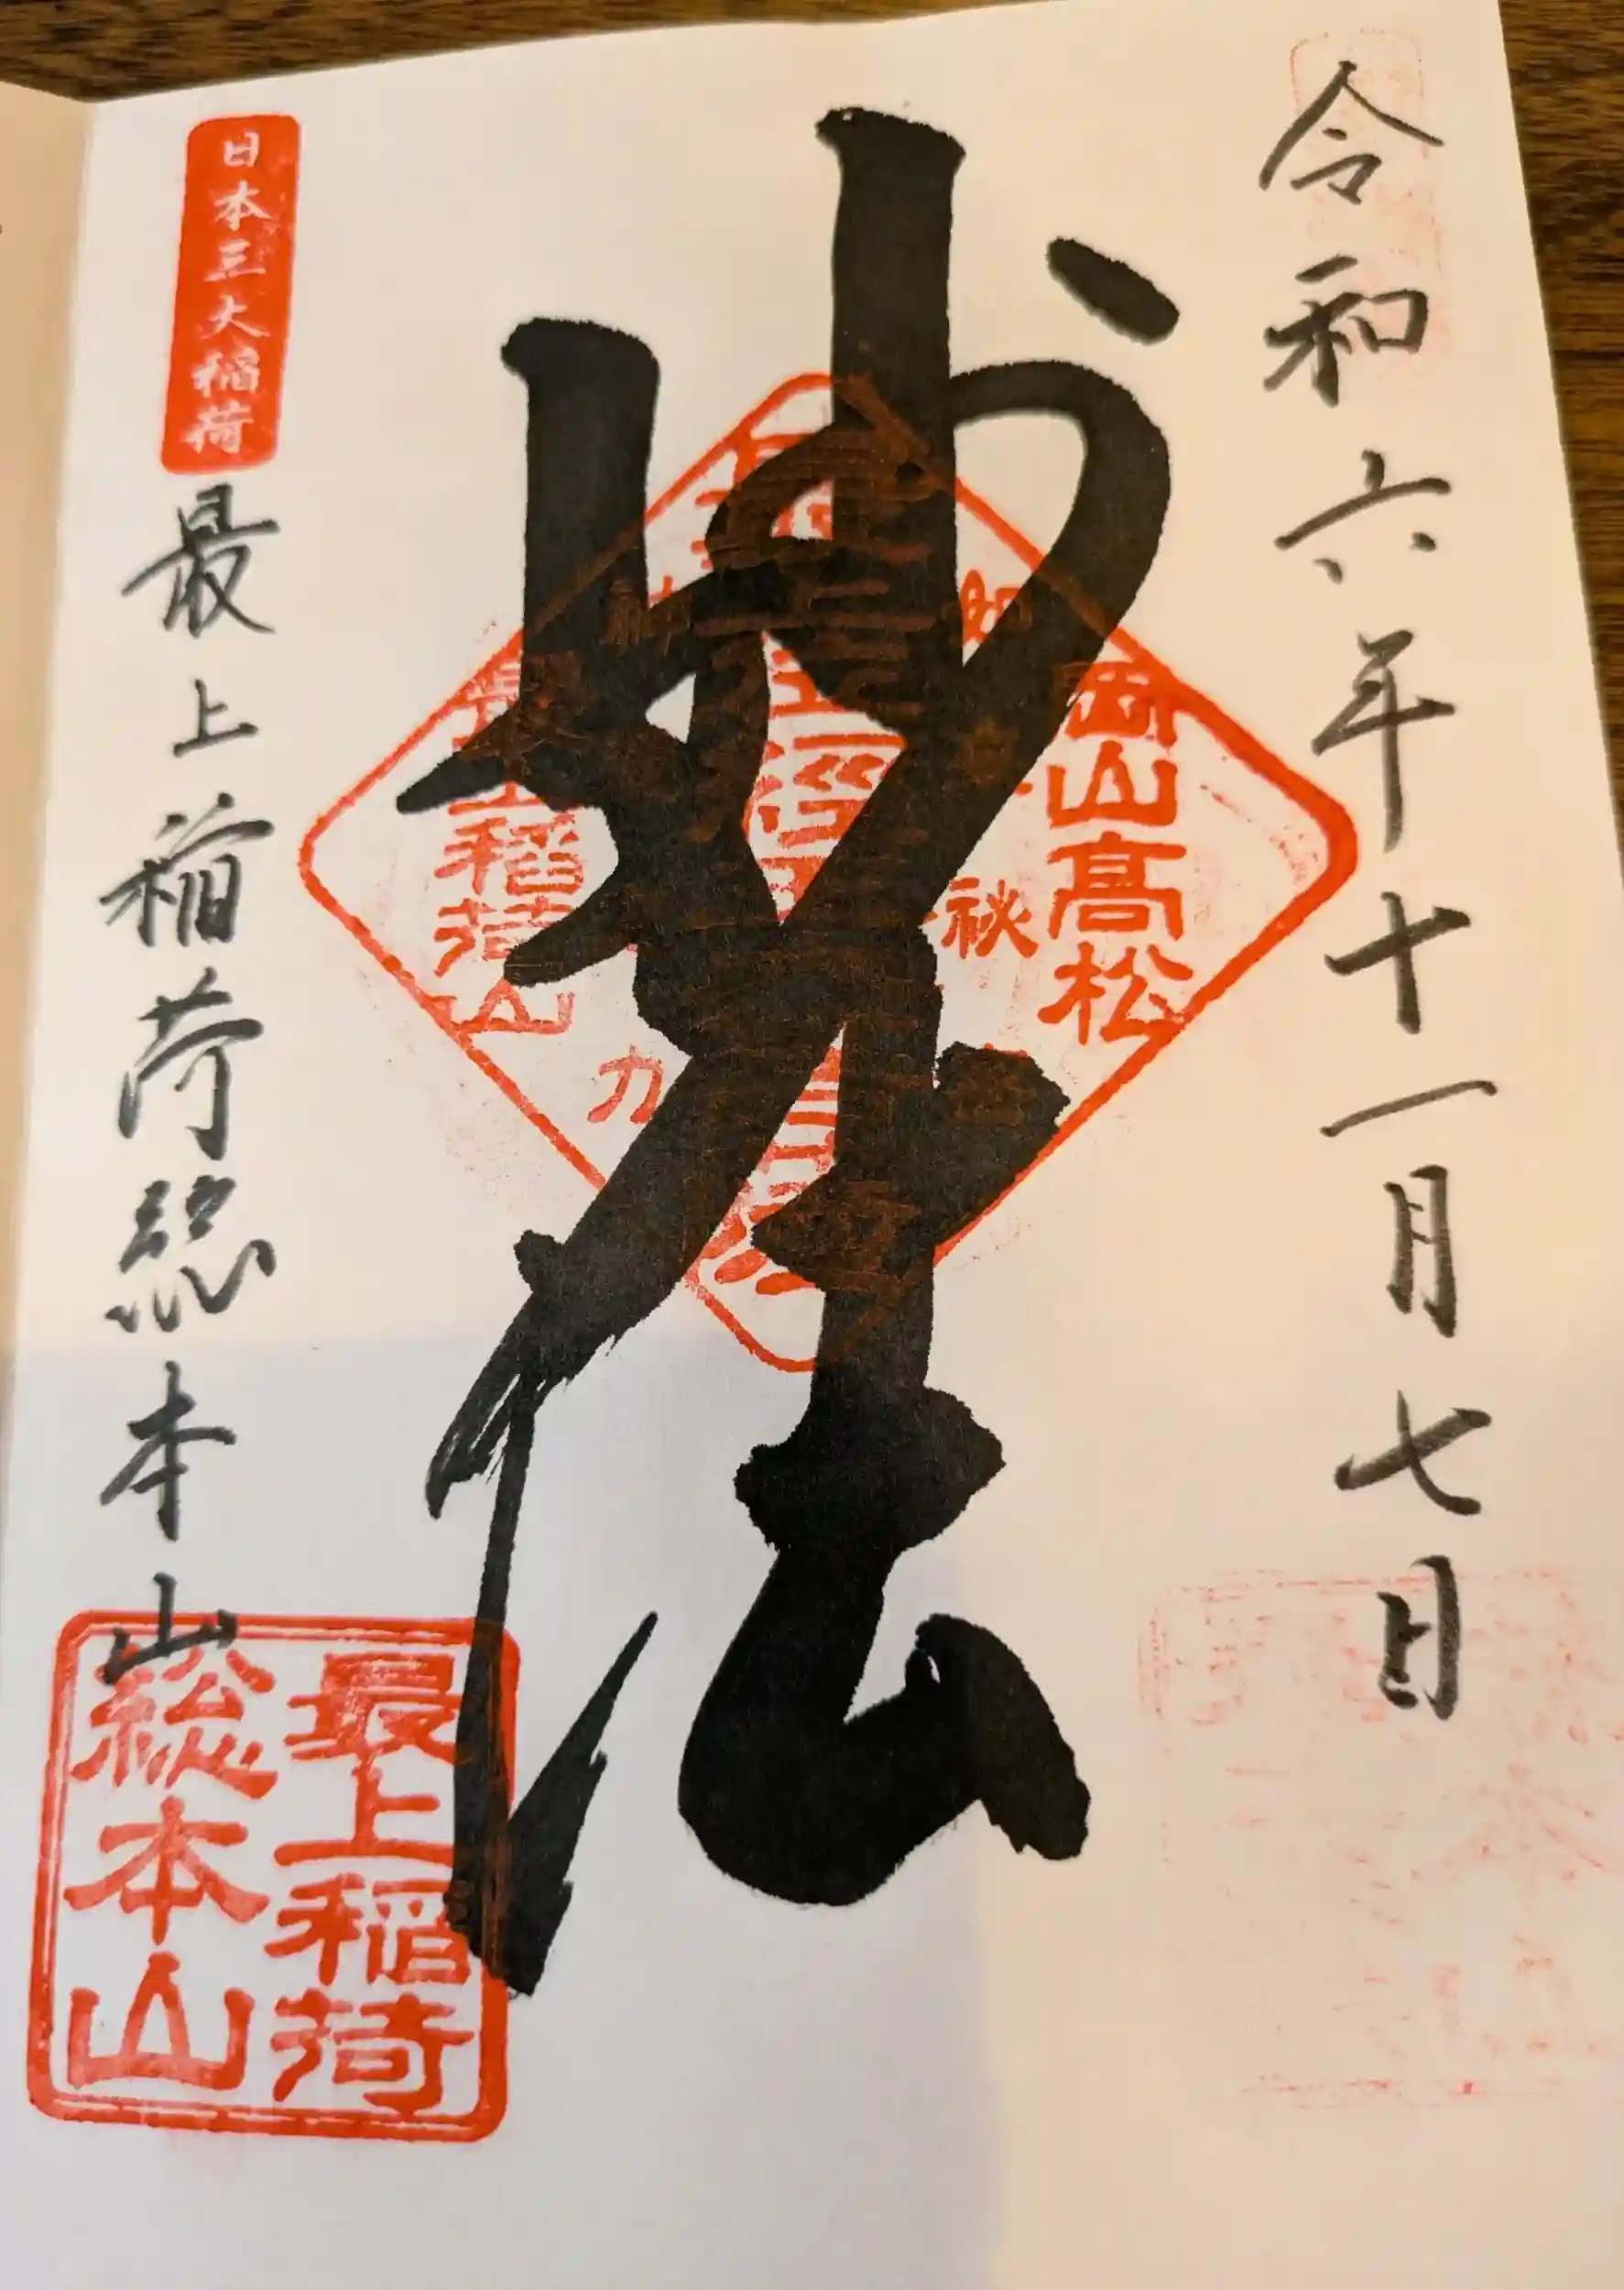 令和六年十一月七日
妙法
岡山高松
秘
力
最上稲荷山
日本三大稲荷
最上稲荷総本山
最上稲荷
総本山